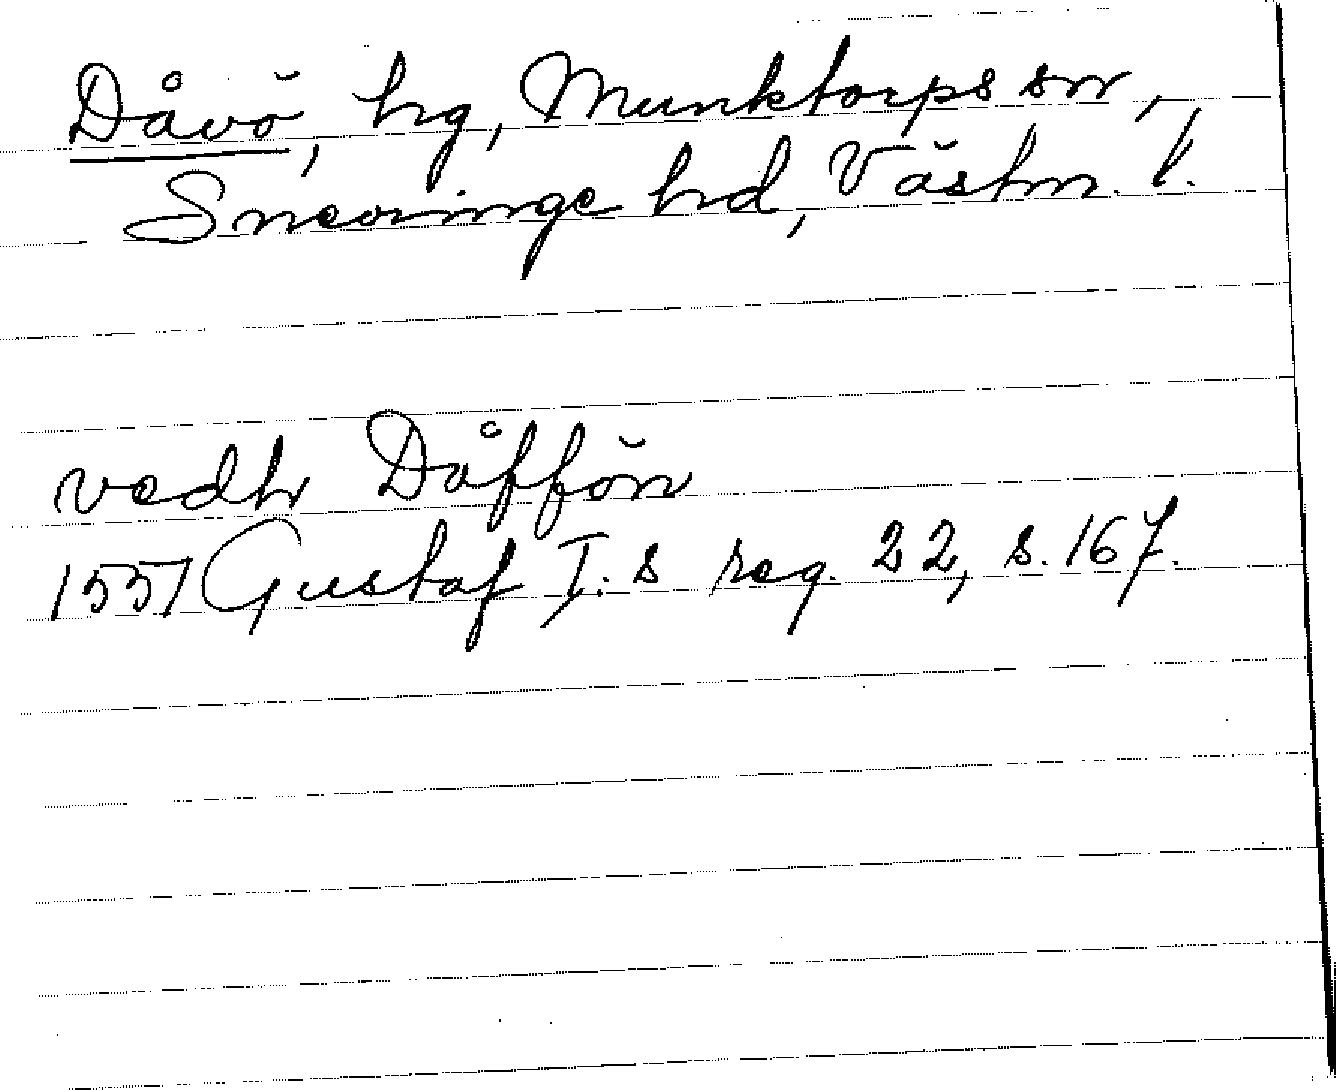 Dåvö, hg, Munktorps sn,
Snevringe hd, Västm. l.
vedh Dåffön
1551 Gustaf I:s reg. 22, s. 167.